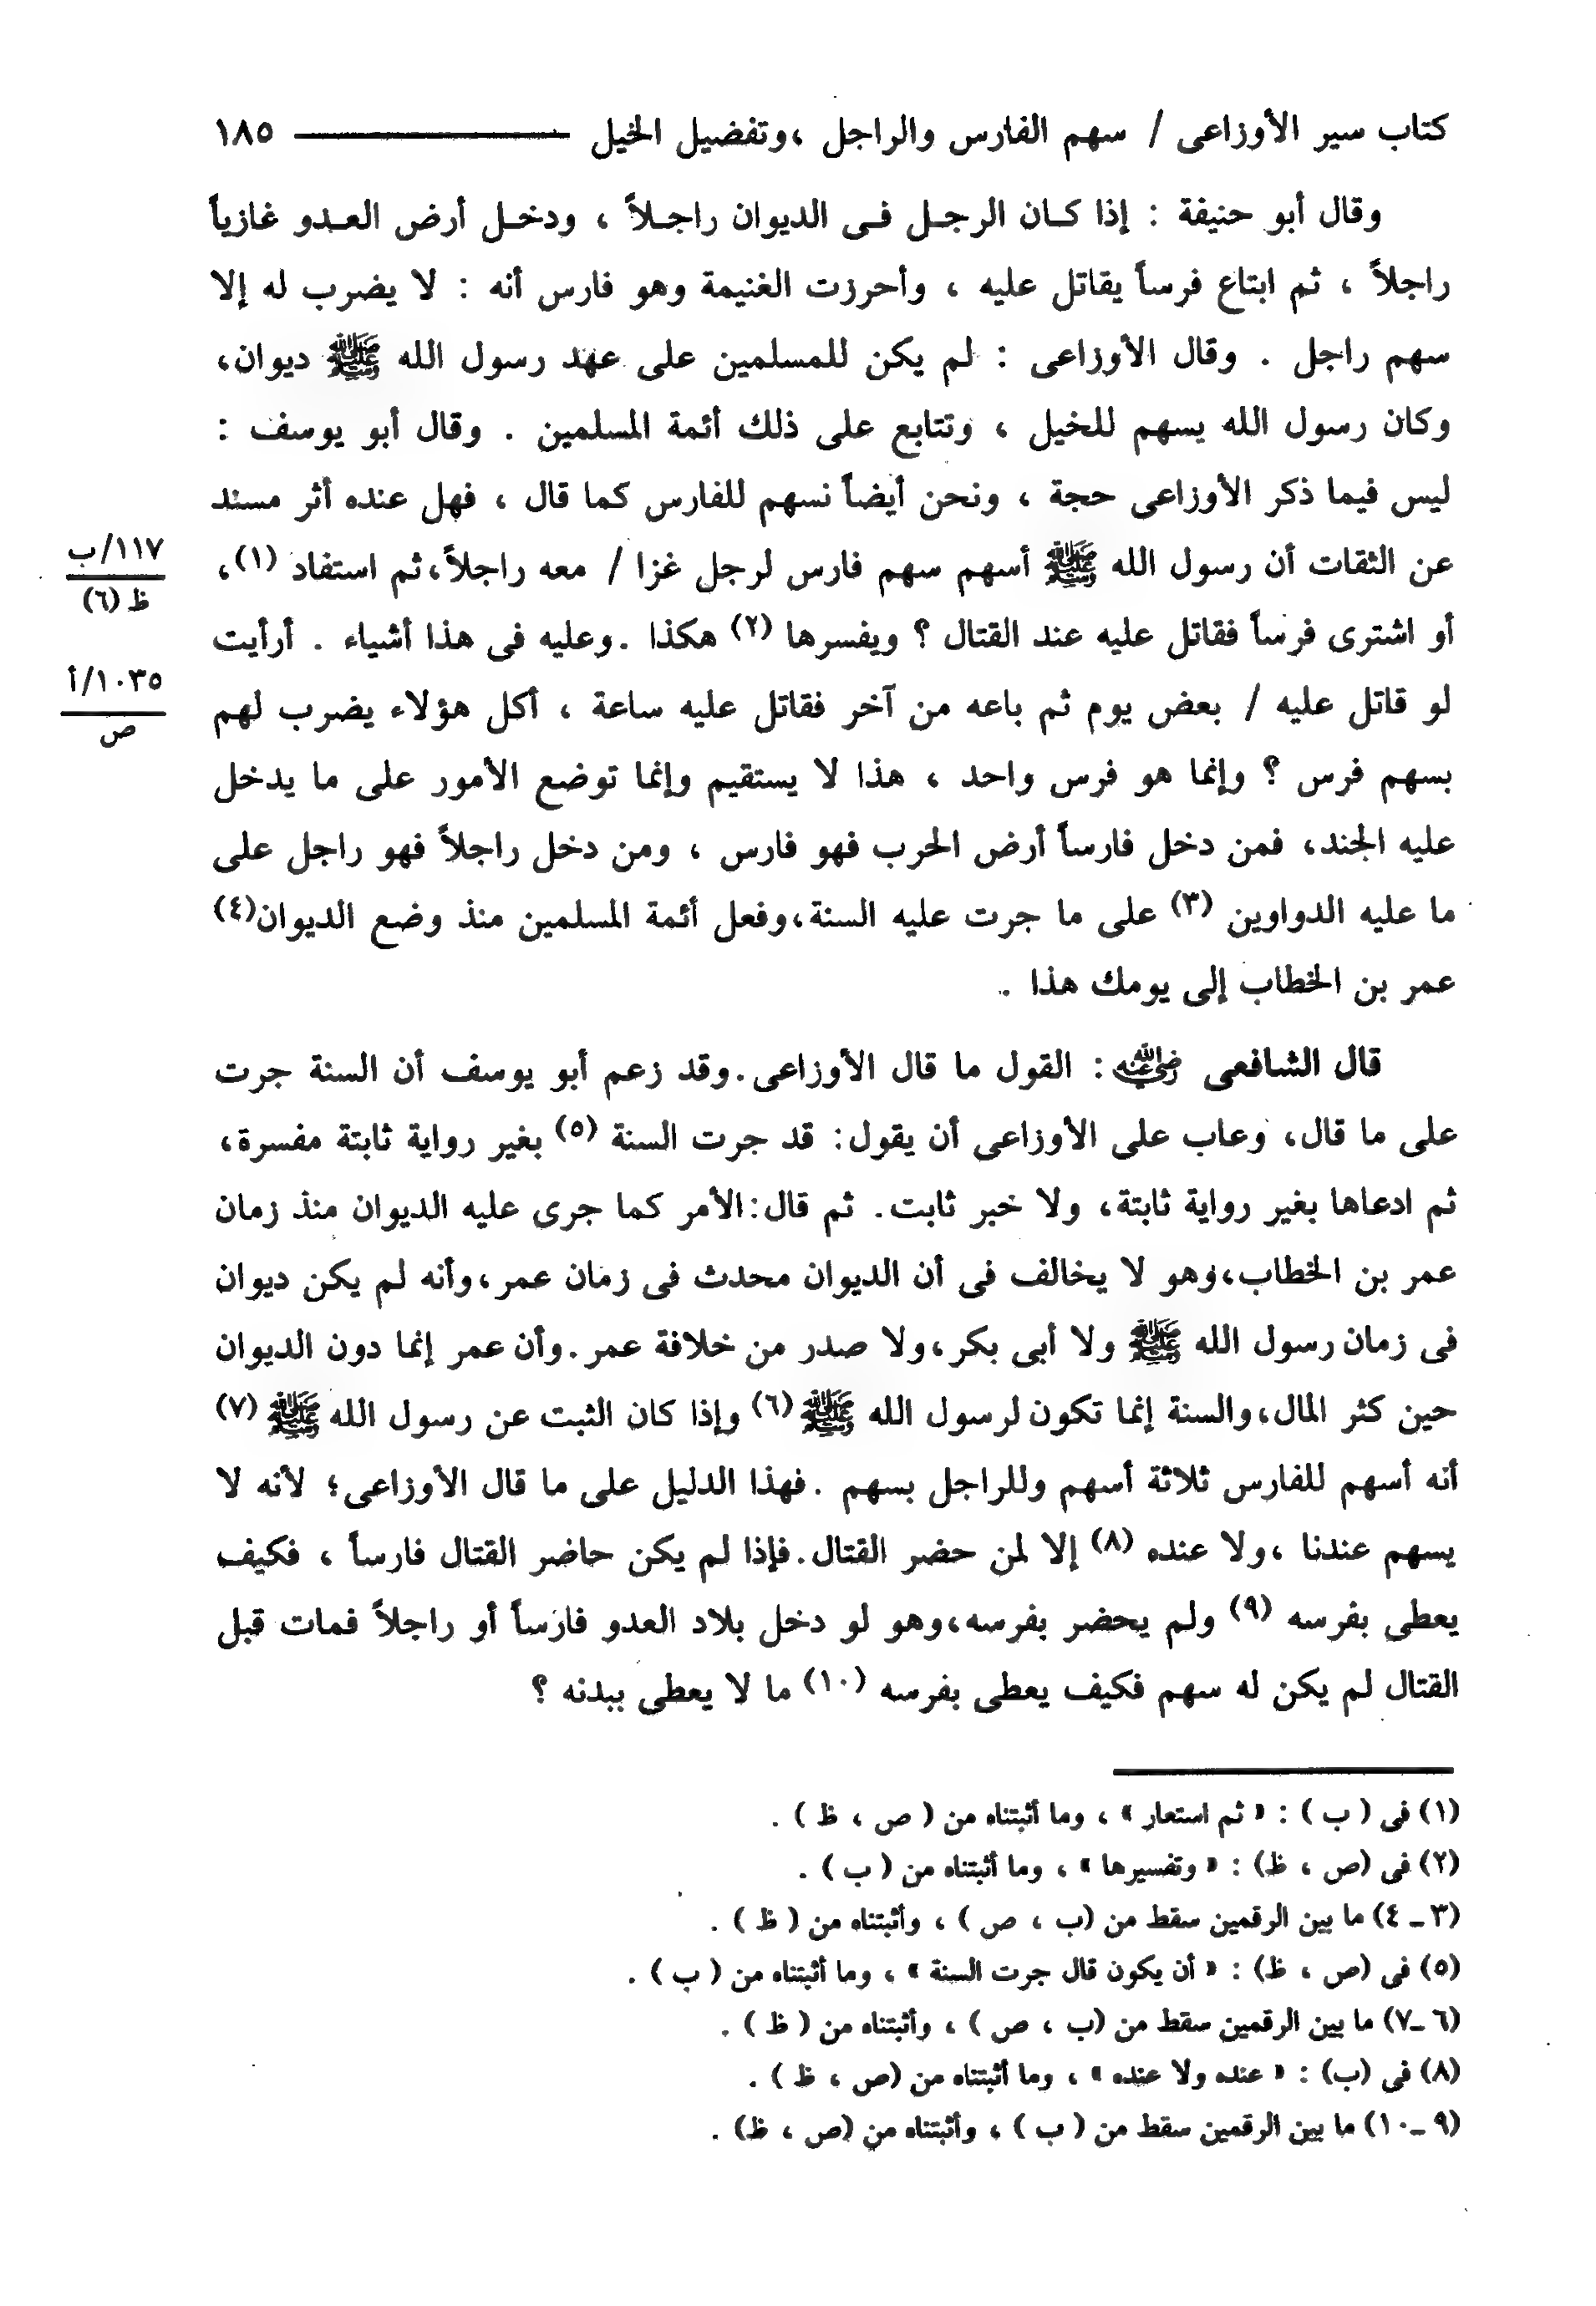 كتاب سير الأوزاعى / سهم الفارس والراجل ،وتفضيل الخيل ــــــــ ١٨٥
وقال أبو حنيفة : إذا كـان الرجـل فـى الديوان راجـلاً ، ودخـل أرض العـدو غازياً
راجلاً ، ثم ابتاع فرساً يقاتل عليه ، وأحرزت الغنيمة وهو فارس أنه : لا يضرب له إلا
سهم راجل . وقال الأوزاعى : لم يكن للمسلمين على عهد رسول الله ﷺ ديوان،
وكان رسول الله يسهم للخيل ، وتتابع على ذلك أئمة المسلمين . وقال أبو يوسف :
ليس فيما ذكر الأوزاعى حجة ، ونحن أيضاً نسهم للفارس كما قال ، فهل عنده أثر مسند
عن الثقات أن رسول الله ﷺ أسهم سهم فارس لرجل غزا / معه راجلاً،ثم استفاد (١)،
١١٧/ب
ظ (٦)
أو اشترى فرساً فقاتل عليه عند القتال ؟ ويفسرها (٢) هكذا .وعليه فى هذا أشياء . أرأيت
لو قاتل عليه / بعض يوم ثم باعه من آخر فقاتل عليه ساعة ، أكل هؤلاء يضرب لهم
١٠٣٥/أ
ص
بسهم فرس ؟ وإنما هو فرس واحد ، هذا لا يستقيم وإنما توضع الأمور على ما يدخل
عليه الجند، فمن دخل فارساً أرض الحرب فهو فارس ، ومن دخل راجلاً فهو راجل على
ما عليه الدواوين (٣) على ما جرت عليه السنة،وفعل أئمة المسلمين منذ وضع الديوان(٤)
عمر بن الخطاب إلى يومك هذا .
قال الشافعى رضي الله عنه : القول ما قال الأوزاعى.وقد زعم أبو يوسف أن السنة جرت
على ما قال، وعاب على الأوزاعى أن يقول: قد جرت السنة (٥) بغير رواية ثابتة مفسرة،
ثم ادعاها بغير رواية ثابتة، ولا خبر ثابت. ثم قال:الأمر كما جرى عليه الديوان منذ زمان
عمر بن الخطاب،وهو لا يخالف فى أن الديوان محدث فى زمان عمر،وأنه لم يكن ديوان
فى زمان رسول الله ﷺ ولا أبى بكر،ولا صدر من خلافة عمر.وأن عمر إنما دون الديوان
حين كثر المال،والسنة إنما تكون لرسول الله ﷺ (٦) وإذا كان الثبت عن رسول الله ﷺ (٧)
أنه أسهم للفارس ثلاثة أسهم وللراجل بسهم .فهذا الدليل على ما قال الأوزاعى؛ لأنه لا
يسهم عندنا ،ولا عنده (٨) إلا لمن حضر القتال.فإذا لم يكن حاضر القتال فارساً ، فكيف
يعطى بفرسه (٩) ولم يحضر بفرسه،وهو لو دخل بلاد العدو فارساً أو راجلاً فمات قبل
القتال لم يكن له سهم فكيف يعطى بفرسه (١٠) ما لا يعطى ببدنه ؟
(١) فى ( ب ) : « ثم استعار » ، وما أثبتناه من ( ص ، ظ ) .
(٢) فى (ص ، ظ) : « وتفسيرها » ، وما أثبتناه من ( ب ) .
(٣ ـ ٤) ما بين الرقمين سقط من (ب ، ص ) ، وأثبتناه من ( ظ ) .
(٥) فى (ص ، ظ) : « أن يكون قال جرت السنة » ، وما أثبتناه من ( ب ) .
(٦ ـ٧) ما بين الرقمين سقط من (ب ، ص ) ، وأثبتناه من ( ظ ) .
(٨) فى (ب) : « عنده ولا عنده » ، وما أثبتناه من (ص ، ظ ) .
(٩ ـ١٠) ما بين الرقمين سقط من ( ب ) ، وأثبتناه من (ص ، ظ) .